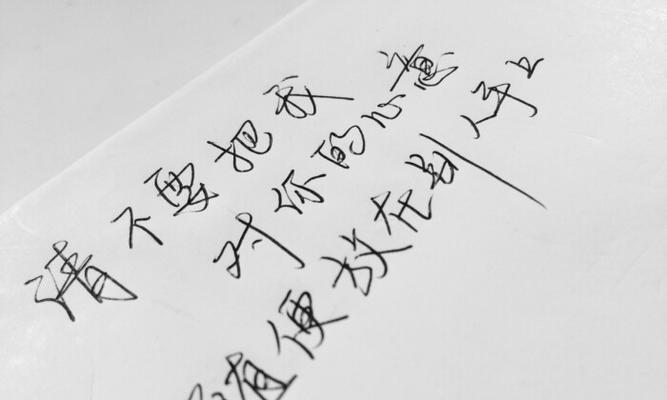 请不要把我
对你的心意
随便放在别人身上